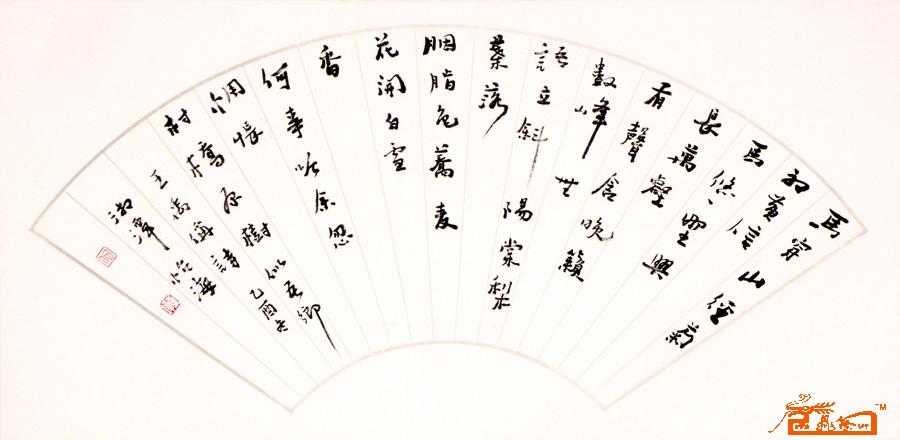 馬穿山徑菊
初黃信
馬悠悠野興
長萬壑
有聲含晚籟
數峰無
語立斜陽棠梨
葉落
胭脂色蕎麥
花開白雪
香
何事吟余忽
惆悵
村橋原樹似吾鄉
王禹偁詩乙酉冬
湘潭